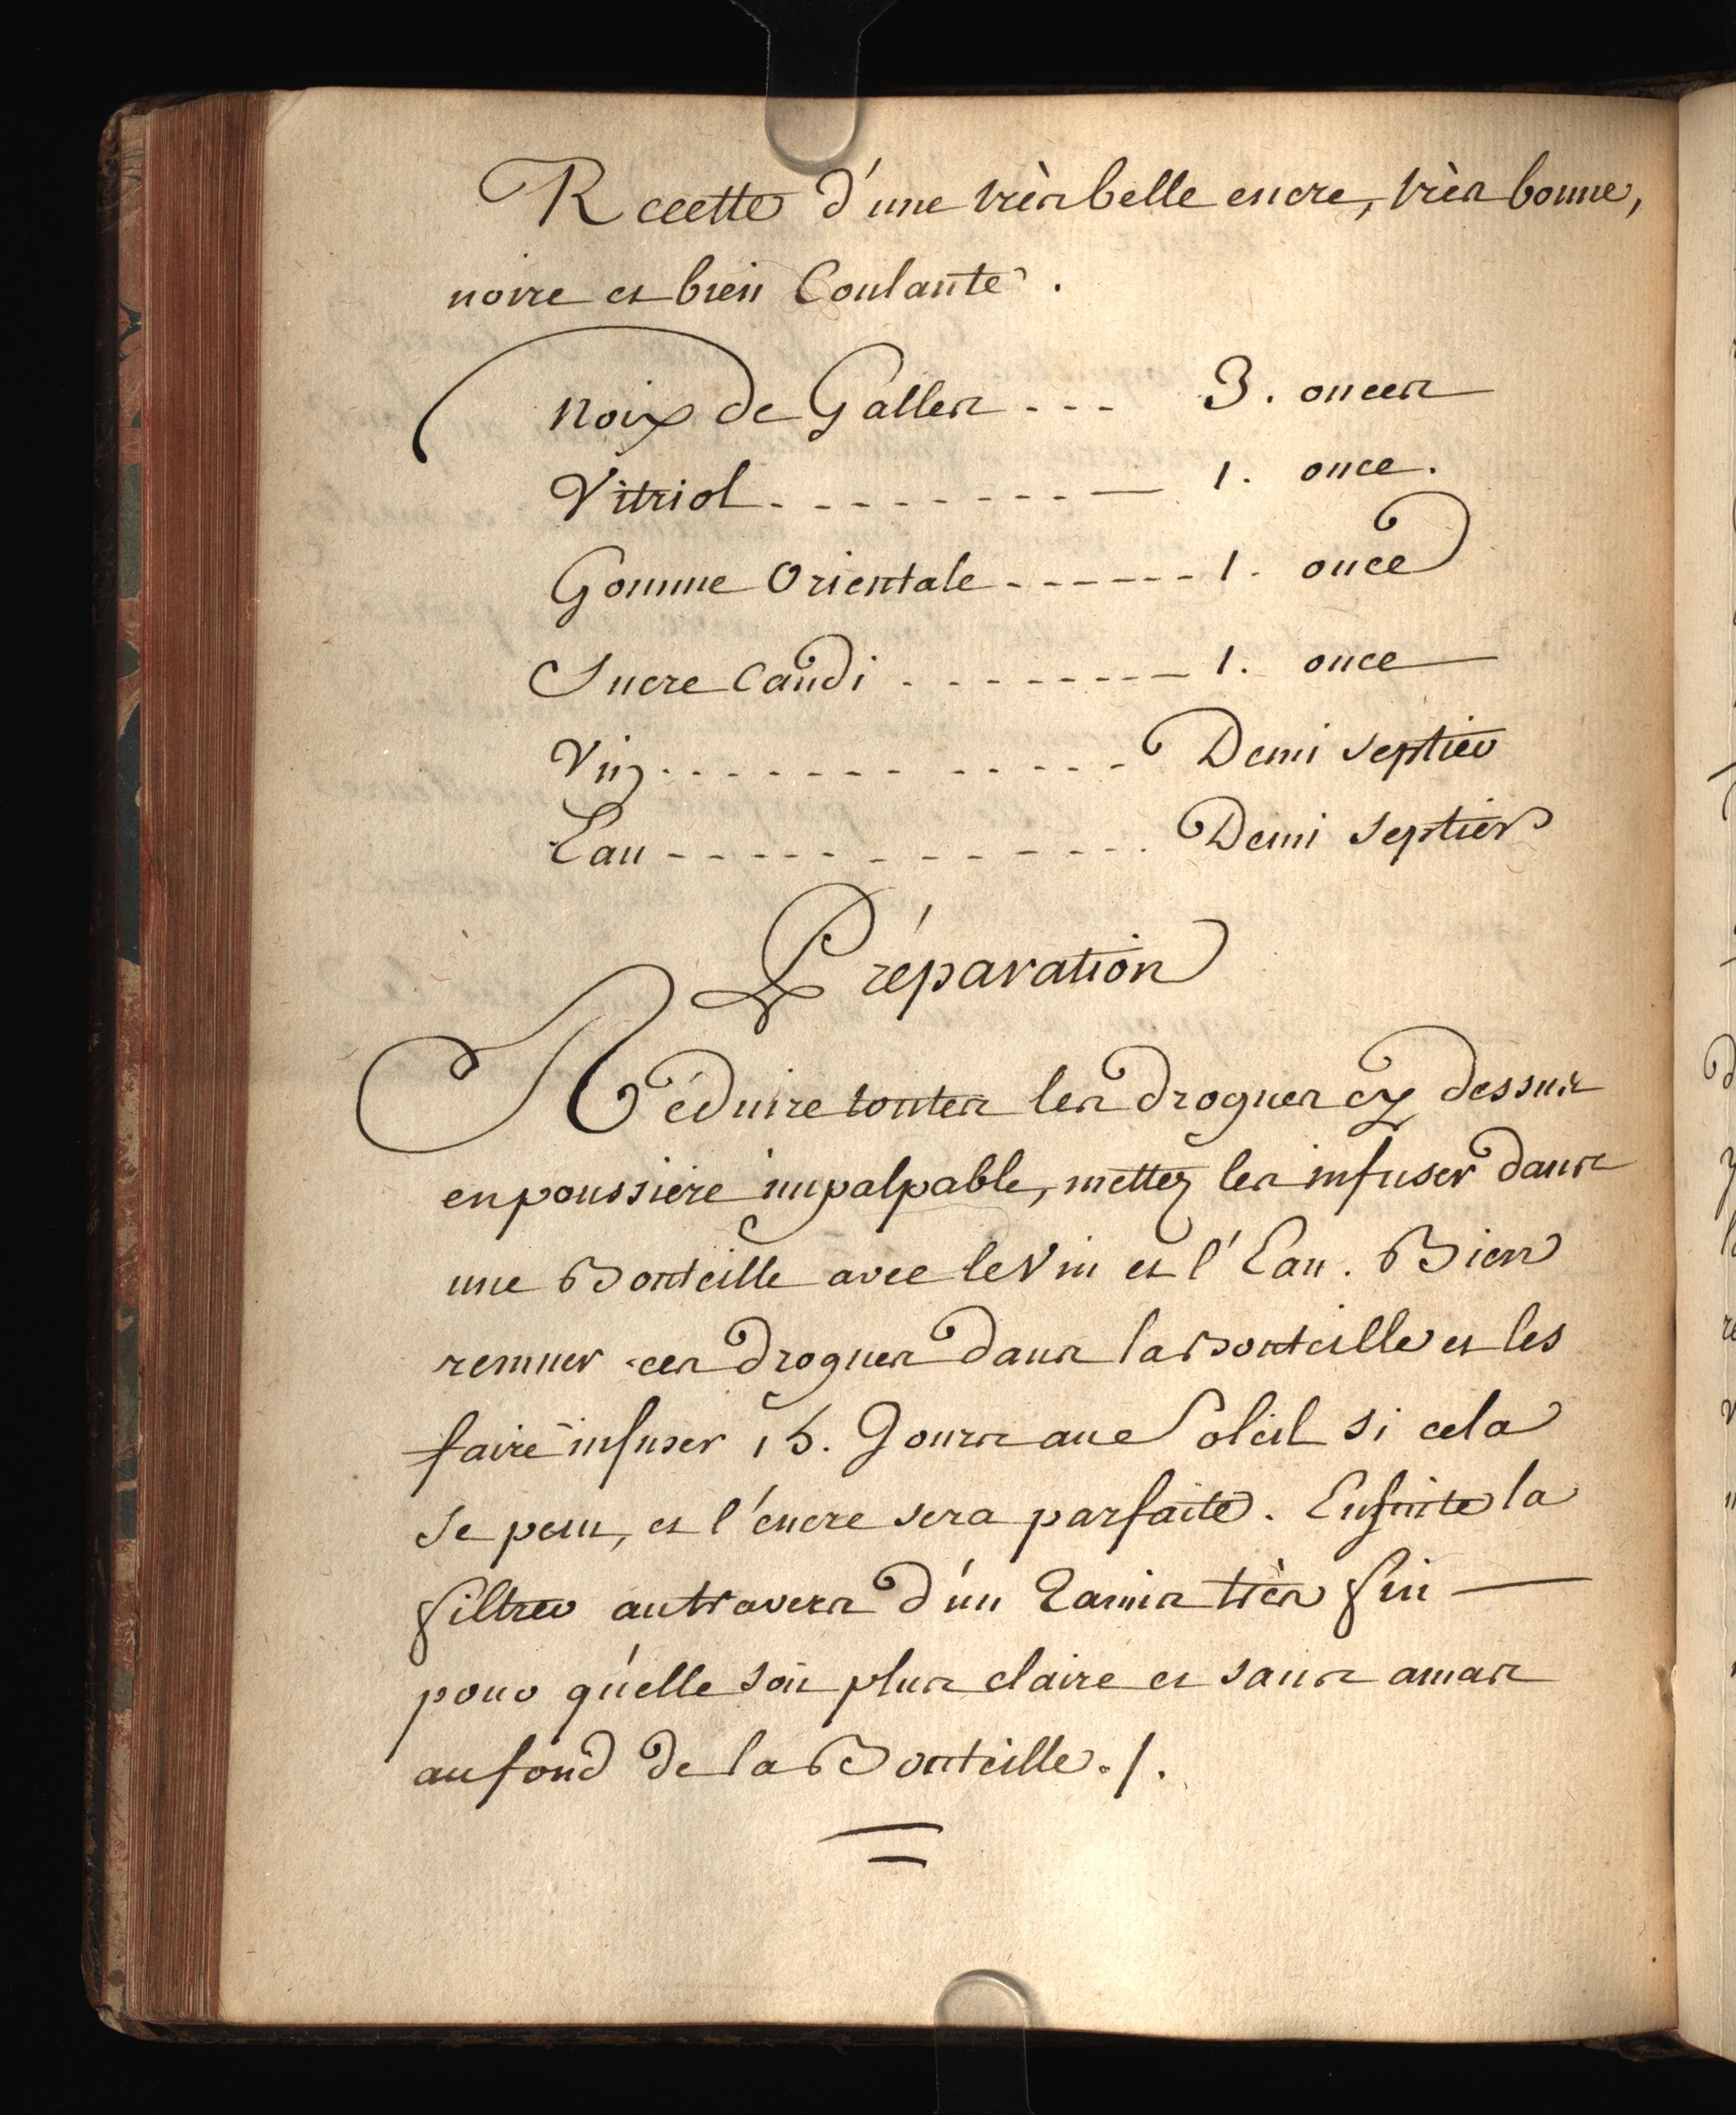 Recette d'une très belle encre, très bonne,
noire et bien Coulante.
Noix de Galles --- 3. onces
Vitriol. -------- 1. once.
Gomme Orientale ------ 1. once
Sucre Candi -------- 1. once
Vin ------- ----- Demi septier
Eau ------------- Demi septier
Préparation
Réduire toutes les drogues cy dessus
en poussière impalpable, mettez les infuser dans
une Bouteille avec le Vin et l'Eau. Bien
remuer ces drogues dans la Bouteille et les
faire infuser 15. Jours au Soleil si cela
se peut, et l'encre sera parfaite. Ensuite la
filtrer au travers d'un Tamis très fin —
pour qu'elle soit plus claire et sans amas
au fond de la Bouteille./.